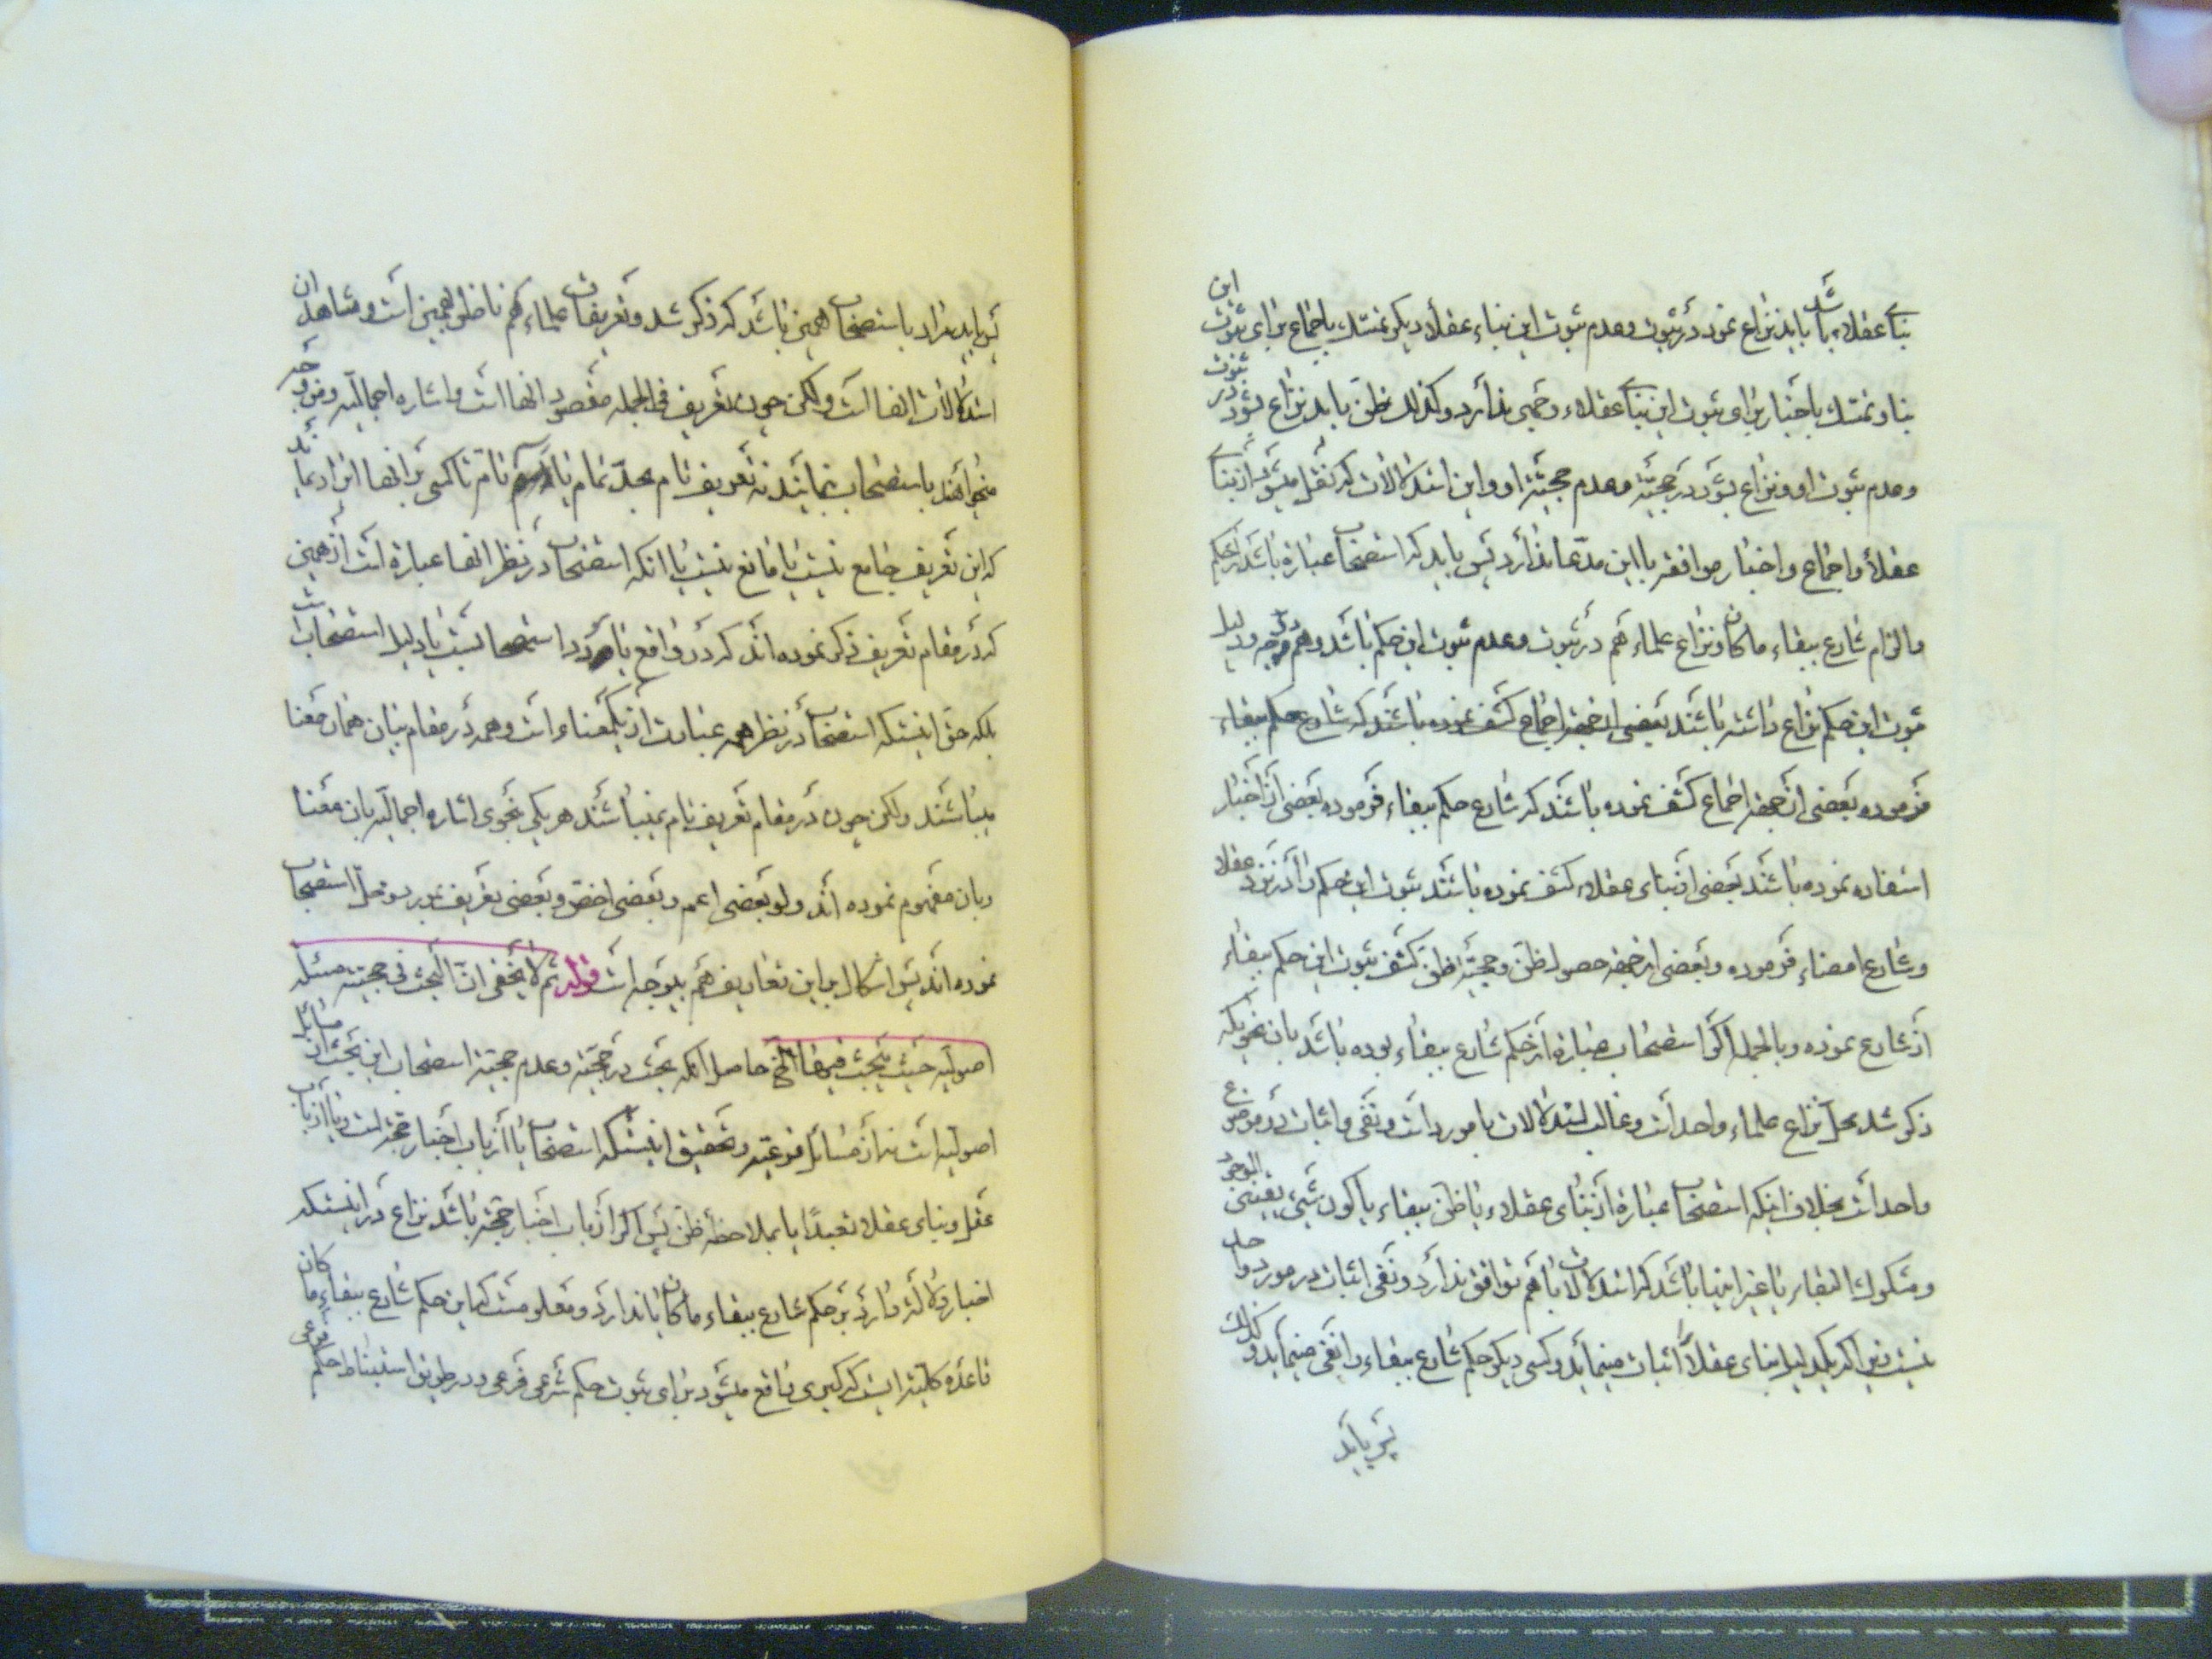 بنای عقلاء باشد باید نزاع نمود در ثبوت و عدم ثبوت این بناء عقلا دیگر تمسک باجماع برای ثبوت این
بنا و تمسک باخبار برای ثبوت این بنای عقلاء وجهی ندارد و کذلک ظن باید نزاع شود در ثبوت
و عدم ثبوت او و نزاع بشود در حجیّة و عدم حجیّة او و این استدلالات که نقل میشود از بنای
عقلا و اجماع و اخبار موافقه با این مدّعا ندارد پس باید که استصحاب عبارة باشد از حکم
و الزام شارع ببقاء ما کان و نزاع علماء هم در ثبوت و عدم ثبوت این حکم باشد و هم در دلیل
ثبوت این حکم نزاع داشته باشند بعضی از جهة اجماع کشف نموده باشند که شارع حکم ببقاء
فرموده بعضی از جهة اجماع کشف نموده باشند که شارع حکم ببقاء فرموده بعضی از اخبار
استفاده نموده باشند بعضی از بنای عقلاء کشف نموده باشند ثبوت این حکم را در نزد عقلاء
و شارع امضاء فرموده و بعضی از جهة حصول ظن و حجیّة ظن کشف ثبوت این حکم ببقاء
از شارع نموده و بالجمله اگر استصحاب عبارة از حکم شارع ببقاء بوده باشد بان نحویکه
ذکر شد محل نزاع علماء واحد است و غالب استدلالات با مورد است و نفی و اثبات در موضوع
واحد است بخلاف اینکه استصحاب عبارة از بنای عقلاء یا ظن ببقاء یا کون شیء یقینی الوجود
و مشکوک البقاء یا غیر اینها باشد که استدلالات با هم توافق ندارد و نفی اثبات در مورد واحد
نیست زیرا که یکدلیل بنای عقلا اثبات مینماید و کسی دیگر حکم شارع ببقاء را نفی مینماید و کذلک
پس باید
پس باید مراد باستصحاب همین باشد که ذکر شد و تعریفات علماء هم ناظر بهمین است و شاهد ان
استدلالات انها است و لکن چون تعریف فی الجمله مقصود انها است و اشاره اجمالیه و من وجه
میخواهند باستصحاب بنمایند نه تعریف تام بحدّ تمام یا رسم تام تا کسی بر انها ایراد نماید
که این تعریف جامع نیست یا مانع نیست یا انکه استصحاب در نظر انها عبارة است از همین
که در مقام تعریف ذکر نموده اند که در واقع یا مورد استصحابست یا دلیل استصحاب است
بلکه حق اینستکه استصحاب در نظر همه عبارت از یکمعناء است و همه در مقام بیان همان معنا
میباشند و لکن چون در مقام تعریف تام نمیباشند هر یکی بنحوی اشاره اجمالیه بان معنا
و بان مفهوم نموده اند و لو بعضی اعم و بعضی اخص و بعضی تعریف بمورد و محلّ استصحاب
نموده اند پس اشکال بر این تعاریف هم بیوجه است قوله ثم لا یخفی انّ البحث فی حجیته مسئلة
اصولیّه حیث یبحث فیها الخ حاصل انکه بحث در حجیّة و عدم حجیة استصحاب این بحث از مسائل
اصولیه است نه از مسائل فرعیّه و تحقیق اینستکه استصحاب یا از باب اخبار حجّة است و یا از باب
عقل و بنای عقلا تعبدًا یا بملاحظه ظن پس اگر از باب اخبار حجّة باشد نزاع در اینستکه
اخبار دلالة دارد بر حکم شارع ببقاء ما کان یا ندارد و معلومست که این حکم شارع ببقاء ما کان
قاعده کلیّة ایست که کبری واقع میشود برای ثبوت حکم شرعی فرعی و در طریق استنباط حکم فرعی